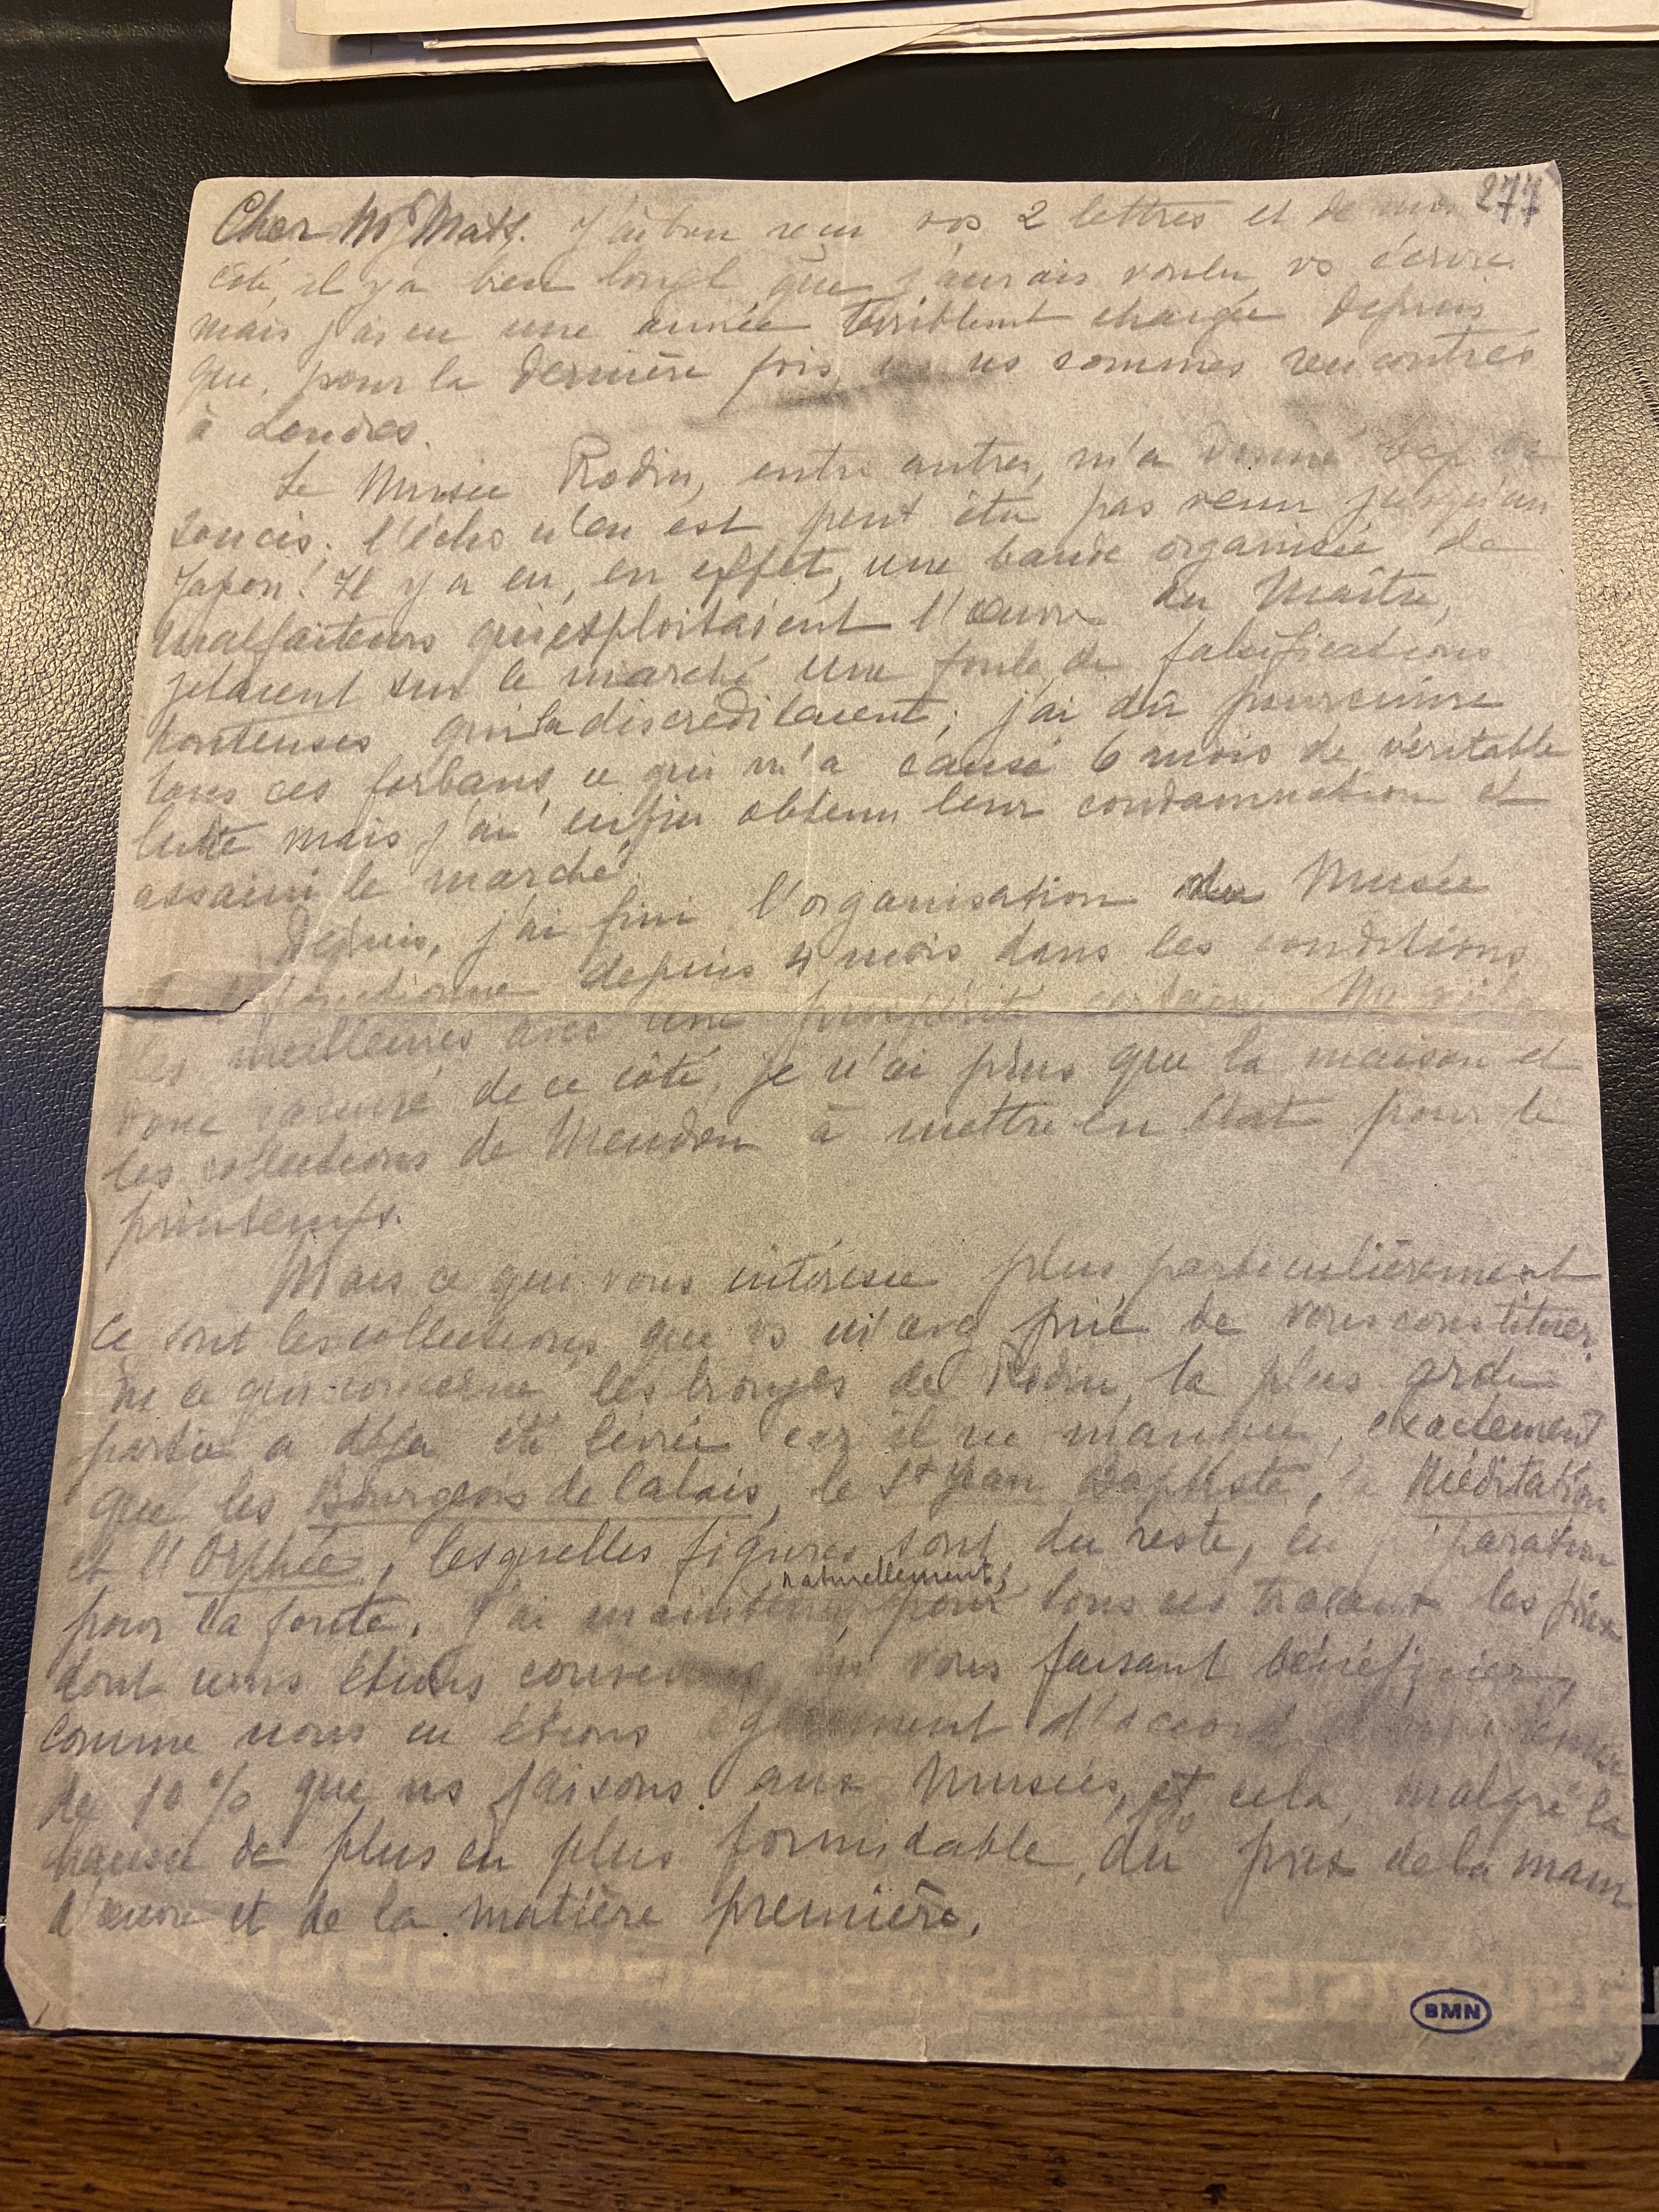 277
Cher Mr Mats. J'ai bien reçu vos 2 lettres et de mon
côté, il y a bien longt que j'aurais voulu vs écrire.
mais j'ai eu une année terriblemt chargée depuis
que, pour la dernière fois, ns sommes rencontrés
à Londres.
Le Musée Rodin, entre autres, m'a donné bcp de
soucis; l'écho n'en est peut être pas venu jusqu'au
Japon! Il y a eu, en effet, une bande organisée de
malfaiteurs qui exploitaient l'œuvre du Maître,
jetaient sur le marché une foule de falsifications
honteuses qui la discréditaient; j'ai dû poursuivre
tous ces forbans, ce qui m'a causé 6 mois de véritable
lutte mais j'ai enfin obtenu leur condamnation et
assaini le marché.
Depuis, j'ai fini l'organisation du Musée
et il fonctionne depuis 4 mois dans les conditions
les meilleures avec une prospérité certaine. Me voilà
donc rassuré de ce côté, je n'ai plus que la maison et
les collections de Meudon à mettre en état pour le
printemps.
Mais ce qui vous intéresse plus particulièrement
ce sont les collections que vs m'avez prié de vous constituer.
En ce qui concerne les bronzes de Rodin, la plus
partie a déjà été livrée car il ne manque, exactement
que les Bourgeois de Calais, le St Jean Baptiste, la Méditation
et l'Orphée, lesquelles figures sont du reste, en préparation
naturellement,
pour la fonte. J'ai maintenu, pour tous ces travaux les prix
dont nous étions convenus, en vous faisant bénéficier,
comme nous en étions également d'accord
de 10% que ns faisons aux Musées, et cela, malgré la
hausse de plus en plus formidable, du prix de la main
d'œuvre et de la matière première.
BMN